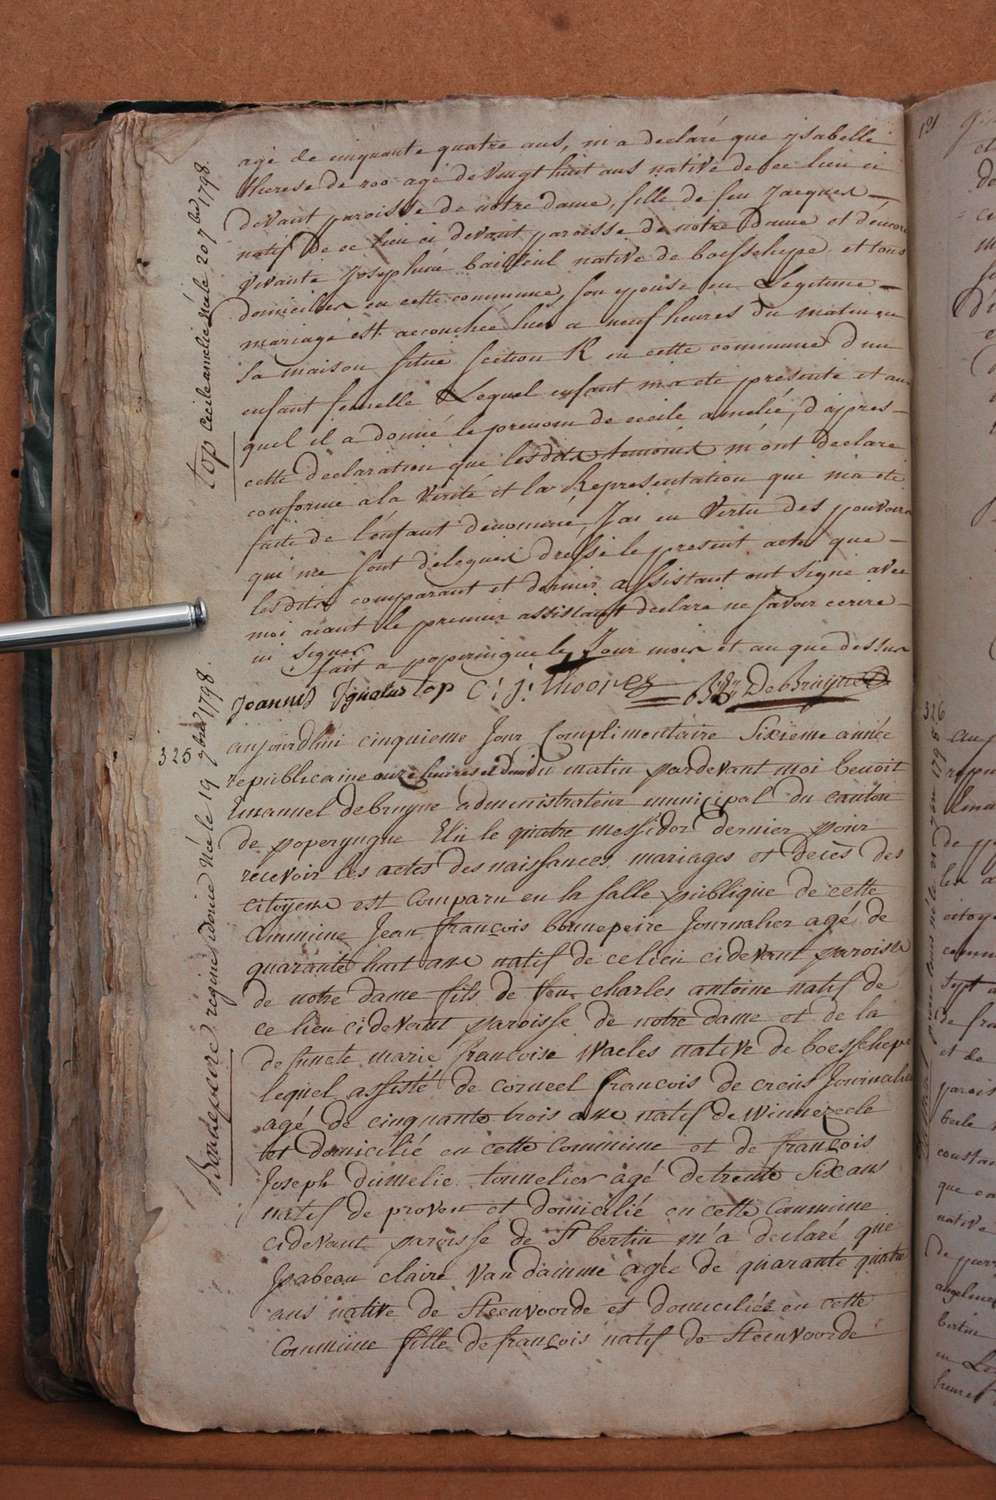 agé de cinquante quatre ans, m'a declaré que ysabelle
therese de roo agé de vingt huit ans native de ce lieu ci
devant paroisse de notre dame, fille de feu Jacques
natif de ce lieu ci devant paroisse de notre Dame et d'encore
vivante Josephine bailleul native de boesschepe et tous
domiciliés en cette commune, son epouse en Legitime
mariage est accouchee hier a neuf heures du matin en
sa maison situe section K en cette commune d'un
enfant femelle Lequel enfant m'a eté presenté et au
quel il a donné le prenom de cecile amelie, d'apres
cette declaration que lesdits temoins m'ont declaré
conforme a la verité et la Representation qui m'a eté
faite de l'enfant denommé, J'ai en vertu des pouvoirs
qui me sont delegués dressé le present acte que
lesdits comparant et dernier assistant ont signé avec
moi aiant le premier assistant declaré ne savoir ecrire
ni signer
fait a poperingue le Jour mois et an que dessus
Joannes Ignatius Top C: j: Thoones Debruyne
top Cecile amelie née le 20 7bre 1798.
325
Bonnepeire regine idonie Née le 19 7bre 1798.
aujourdhui cinquieme Jour Complimentaire Sixieme année
republicaine onze heures et demi du matin pardevant moi benoit
Emanuel debruyne administrateur municipal du canton
de poperyngue Elu le quatre messidor dernier pour
recevoir les actes des naissances mariages et decès des
citoyens est Comparu en la salle publique de cette
Commune Jean françois bonnepeire Journalier agé de
quarante huit ans natif de ce lieu cidevant paroisse
de notre dame fils de feu charles antoine natif de
ce lieu cidevant paroisse de notre dame et de la
defuncte marie francoise Waeles native de boesschepe
lequel assisté de corneel francois de Journalier
agé de cinquante trois ans natif de Winnezeele
et domicilié en cette Commune et de françois
Joseph dumelie tonnelier agé de trente Six ans
natif de proven et domicilié en cette Commune
cidevant paroisse de St bertin m'a declaré que
Isabeau claire Van damme agée de quarante quatre
ans native de Steenvoorde et domiciliée en cette
Commune fille de françois natif de Steenvoorde
326